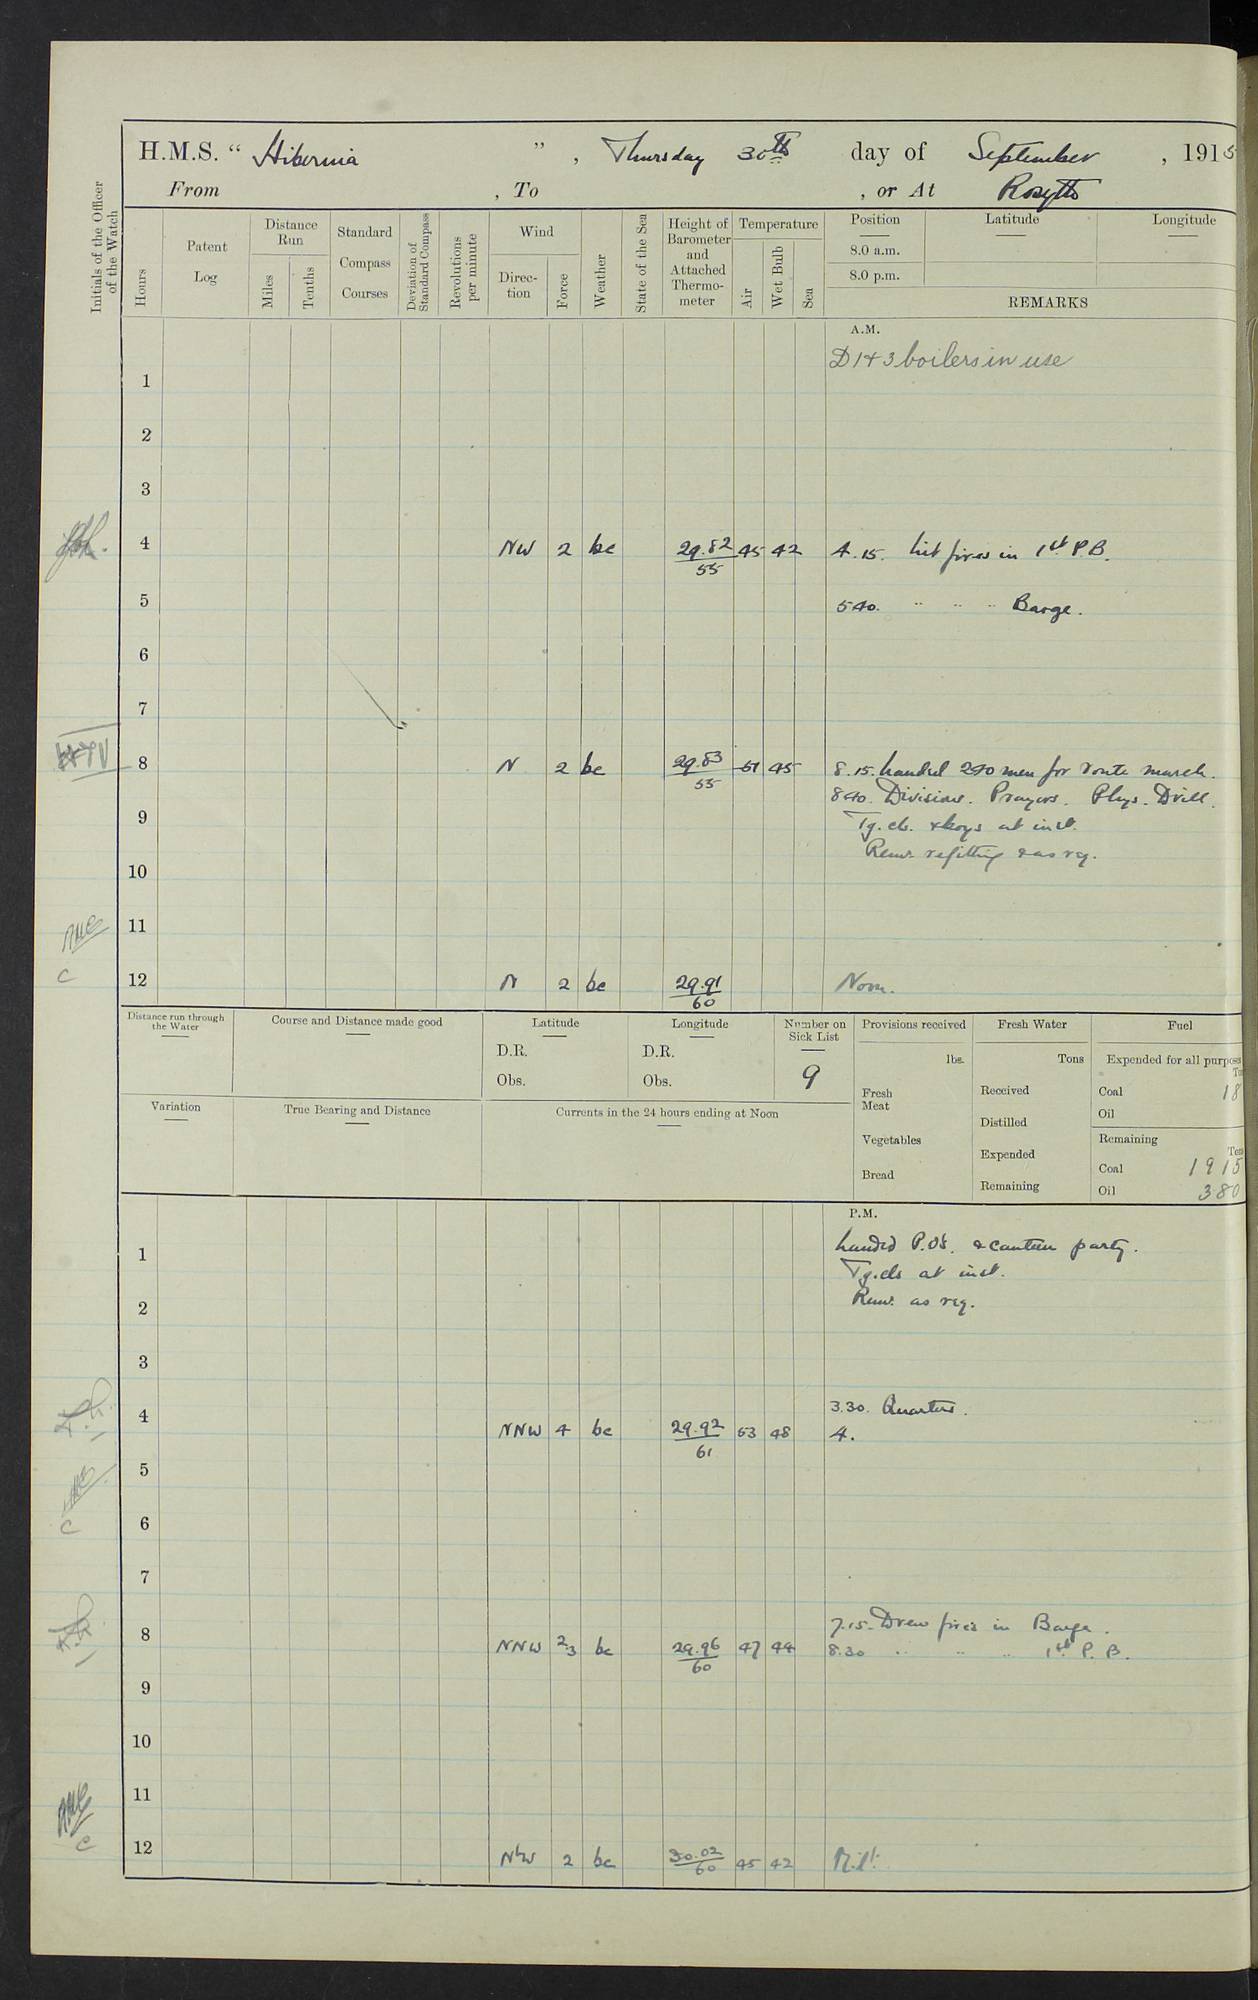 H.M.S. “ Hibernia ” , Thursday 30th day of September , 1915
From , To , or At Rosyth
Initials of the Officer of the Watch
Hours
Patent Log
Distance Run
Miles
Tenths
Standard Compass Courses
Deviation of Standard Compass
Revolutions per minute
Wind
Direction
Force
Weather
State of the Sea
Height of Barometer and Attached Thermometer
Temperature
Air
Wet Bulb
Sea
Position
8.0 a.m.
8.0 p.m.
Latitude
Longitude
REMARKS
A.M.
D 1 + 3 boilers in use
1
2
3
4 NW 2 bc 29.82/55 45 42 4.15. Lit fires in 1st P.B.
5 540. " " " Barge.
6
7
8 N 2 bc 29.83/55 51 45 8.15. Landed 240 men for route march.
840. Divisions. Prayers. Phys. Drill.
9 Tg. cls. & boys at inst.
Remr. refitting & as req.
10
11
12 N 2 bc 29.91/60 Noon.
Distance run through the Water
Course and Distance made good
Latitude
D.R.
Obs.
Longitude
D.R.
Obs.
Number on Sick List
9
Provisions received
lbs.
Fresh Meat
Vegetables
Bread
Fresh Water
Tons
Received
Distilled
Expended
Remaining
Fuel
Expended for all purposes
Coal 18
Oil
Remaining
Tons
Coal 1915
Oil 380
Variation
True Bearing and Distance
Currents in the 24 hours ending at Noon
P.M.
Landed P.O's. & canteen party.
1
Tg. cls at inst.
2 Remr. as req.
3
3.30. Quarters.
4 NNW 4 bc 29.92/61 53 48 4.
5
6
7
7.15. Drew fires in Barge.
8 NNW 2.3 bc 29.96/60 47 44 8.30 " " " 1st P. B.
9
10
11
12 NbW 2 bc 30.02/60 45 42 Mid.t